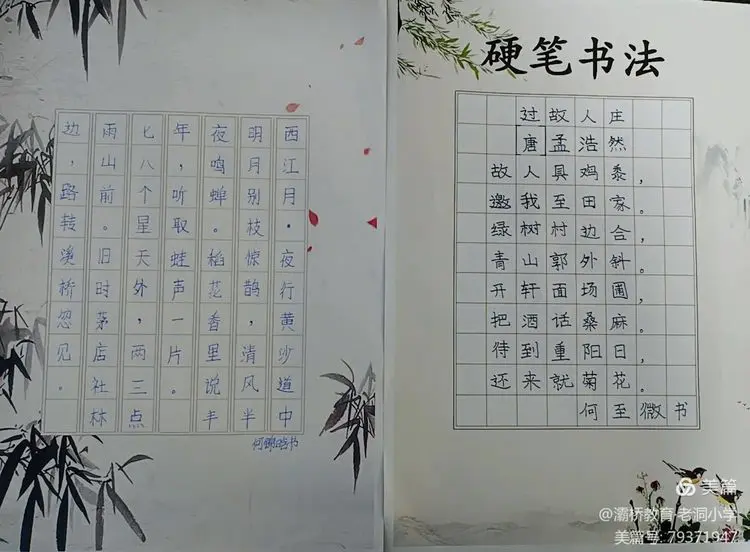 西江月·夜行黄沙道中
明月别枝惊鹊，清风半
夜鸣蝉。稻花香里说丰
年，听取蛙声一片。
七八个星天外，两三点
雨山前。旧时茅店社林
边，路转溪桥忽见。
硬笔书法
过故人庄
唐孟浩然
故人具鸡黍，
邀我至田家。
绿树村边合，
青山郭外斜。
开轩面场圃，
把酒话桑麻。
待到重阳日，
还来就菊花。
何至微书
美篇
@灞桥教育-老洞小学
美篇号:79371947